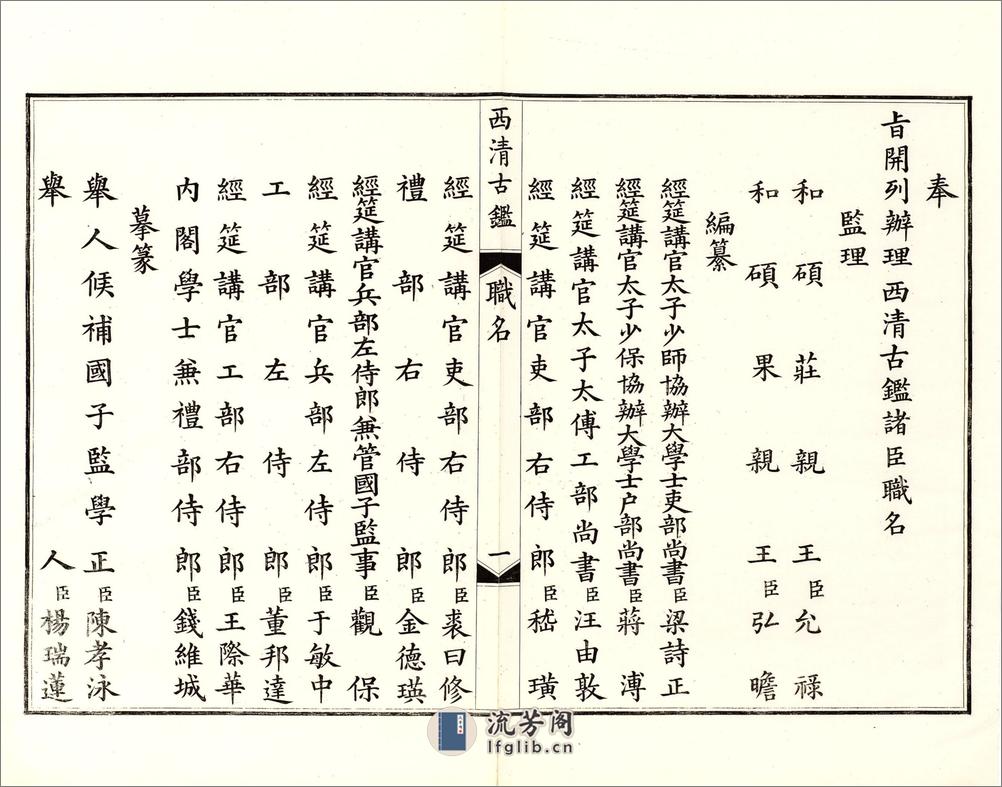 奉
旨開列辦理西清古鑑諸臣職名
監理
和碩莊親王臣允祿
和碩果親王臣弘瞻
編纂
經筵講官太子少師協辦大學士吏部尚書臣梁詩正
經筵講官太子少保協辦大學士户部尚書臣蔣溥
經筵講官太子太傅工部尚書臣汪由敦
經筵講官吏部右侍郎臣嵇璜
西清古鑑
職名
一
經筵講官吏部右侍郎臣裘曰修
禮部右侍郎臣金德瑛
經筵講官兵部左侍郎兼管國子監事臣觀保
經筵講官兵部左侍郎臣于敏中
工部左侍郎臣董邦達
經筵講官工部右侍郎臣王際華
内閣學士兼禮部侍郎臣錢維城
摹篆
舉人候補國子監學正臣陳孝泳
舉人臣楊瑞蓮
流芳阁
lfglib.cn